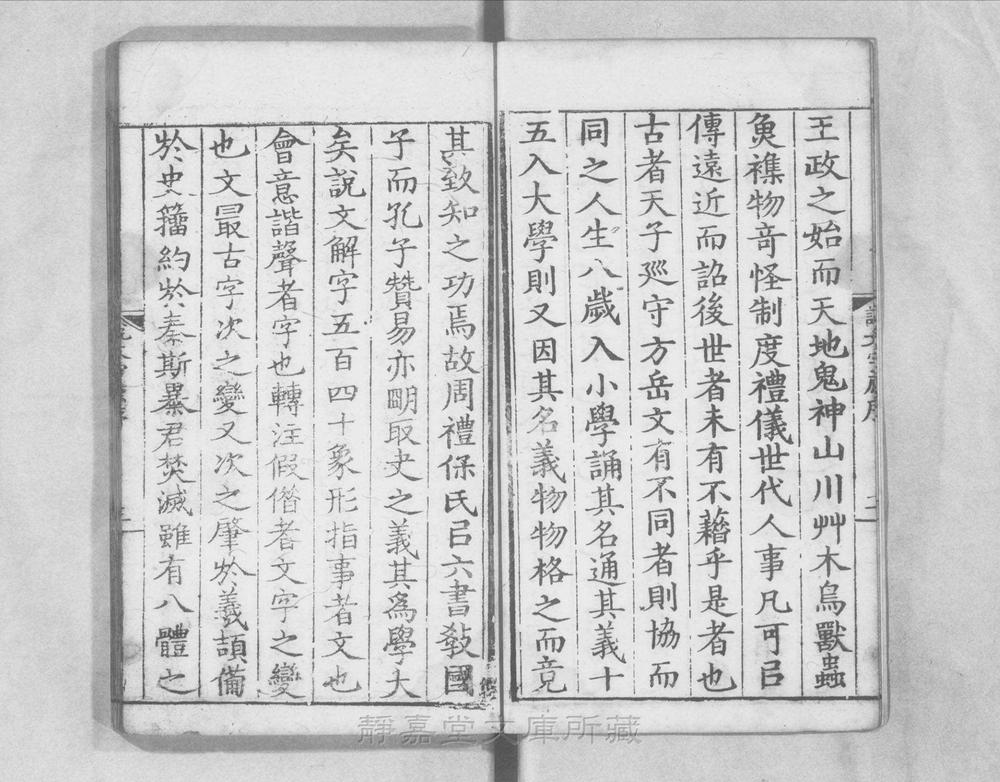 王政之始而天地鬼神山川艸木鳥獸蟲
魚襍物奇怪制度禮儀世代人事凡可㠯
傳遠近而詔後世者未有不藉乎是者也
古者天子廵守方岳文有不同者則協而
同之人生八歲入小學誦其名通其義十
五入大學則又因其名義物物格之而竟
其致知之功焉故周禮保氏㠯六書敎國
子而孔子贊易亦朙取夬之義其爲學大
矣說文解字五百四十象形指事者文也
會意諧聲者字也轉注假借者文字之變
也文最古字次之變又次之肇於羲頡備
於史籒約於秦斯暴君焚滅雖有八體之
靜嘉堂文庫所藏